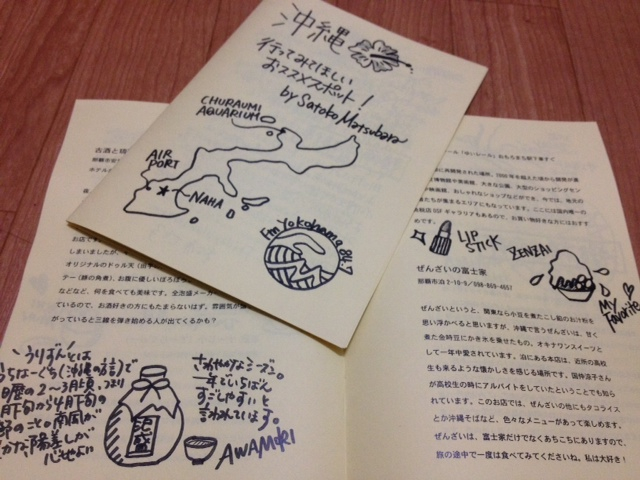 沖縄
行ってみてほしい
おススメスポット!
by Satoko Matsubara
CHURAUMI
AQUARIUM
AIR
PORT
NAHA
Fm yokohama 84.7
古酒と琉
那覇市安
ホテルの
お店で
しまいましたが、
オリジナルのドゥル天(田芋
テー(豚の角煮)、お腹に優しいぼろぼろ
などなど、何を食べても美味です。全泡盛メーカー
ているので、お酒好きの方にもたまらないはず。雰囲気が盛
がっていると三線を弾き始める人が出てくるかも?
うりずんとは
うちなーぐち(沖縄の方言)で
旧暦の2〜3月頃、つまり
月下旬から4月下旬の
節のこと。南風が
かな陽差しが
心地よい
さわやかなシーズン。
一年でいちばん
すごしやすいと
言われています。
泡盛
AWAMORI
ール「ゆいレール」おもろまち駅下車すぐ
に再開発された場所。
博物館や美術館、大きな公園、大型のショッピングセン
映画館、おしゃれなショップなどができ、今では、地元の
達たちが集まるエリアにもなっています。ここには国内唯一の
免税店 DSF ギャラリアもあるので、お買い物好きな方にはおすす
めです。
LIP
STICK
ZENZAI
MY
Favorite
ぜんざいの富士家
那覇市泊 2-10-9/098-869-4657
ぜんざいというと、関東なら小豆を煮たこし餡のお汁粉を
思い浮かべると思いますが、沖縄で言うぜんざいは、甘く
煮た金時豆にかき氷を乗せたもの。オキナワンスイーツと
して一年中愛されています。泊にある本店は、近所の高校
生も来るような懐かしさを感じる場所です。国仲涼子さん
が高校生の時にアルバイトをしていたということでも知ら
れています。このお店では、ぜんざいの他にもタコライス
とか沖縄そばなど、色々なメニューがあって楽しめます。
ぜんざいは、富士家だけでなくあちこちにありますので、
旅の途中で一度は食べてみてくださいね。私は大好き!